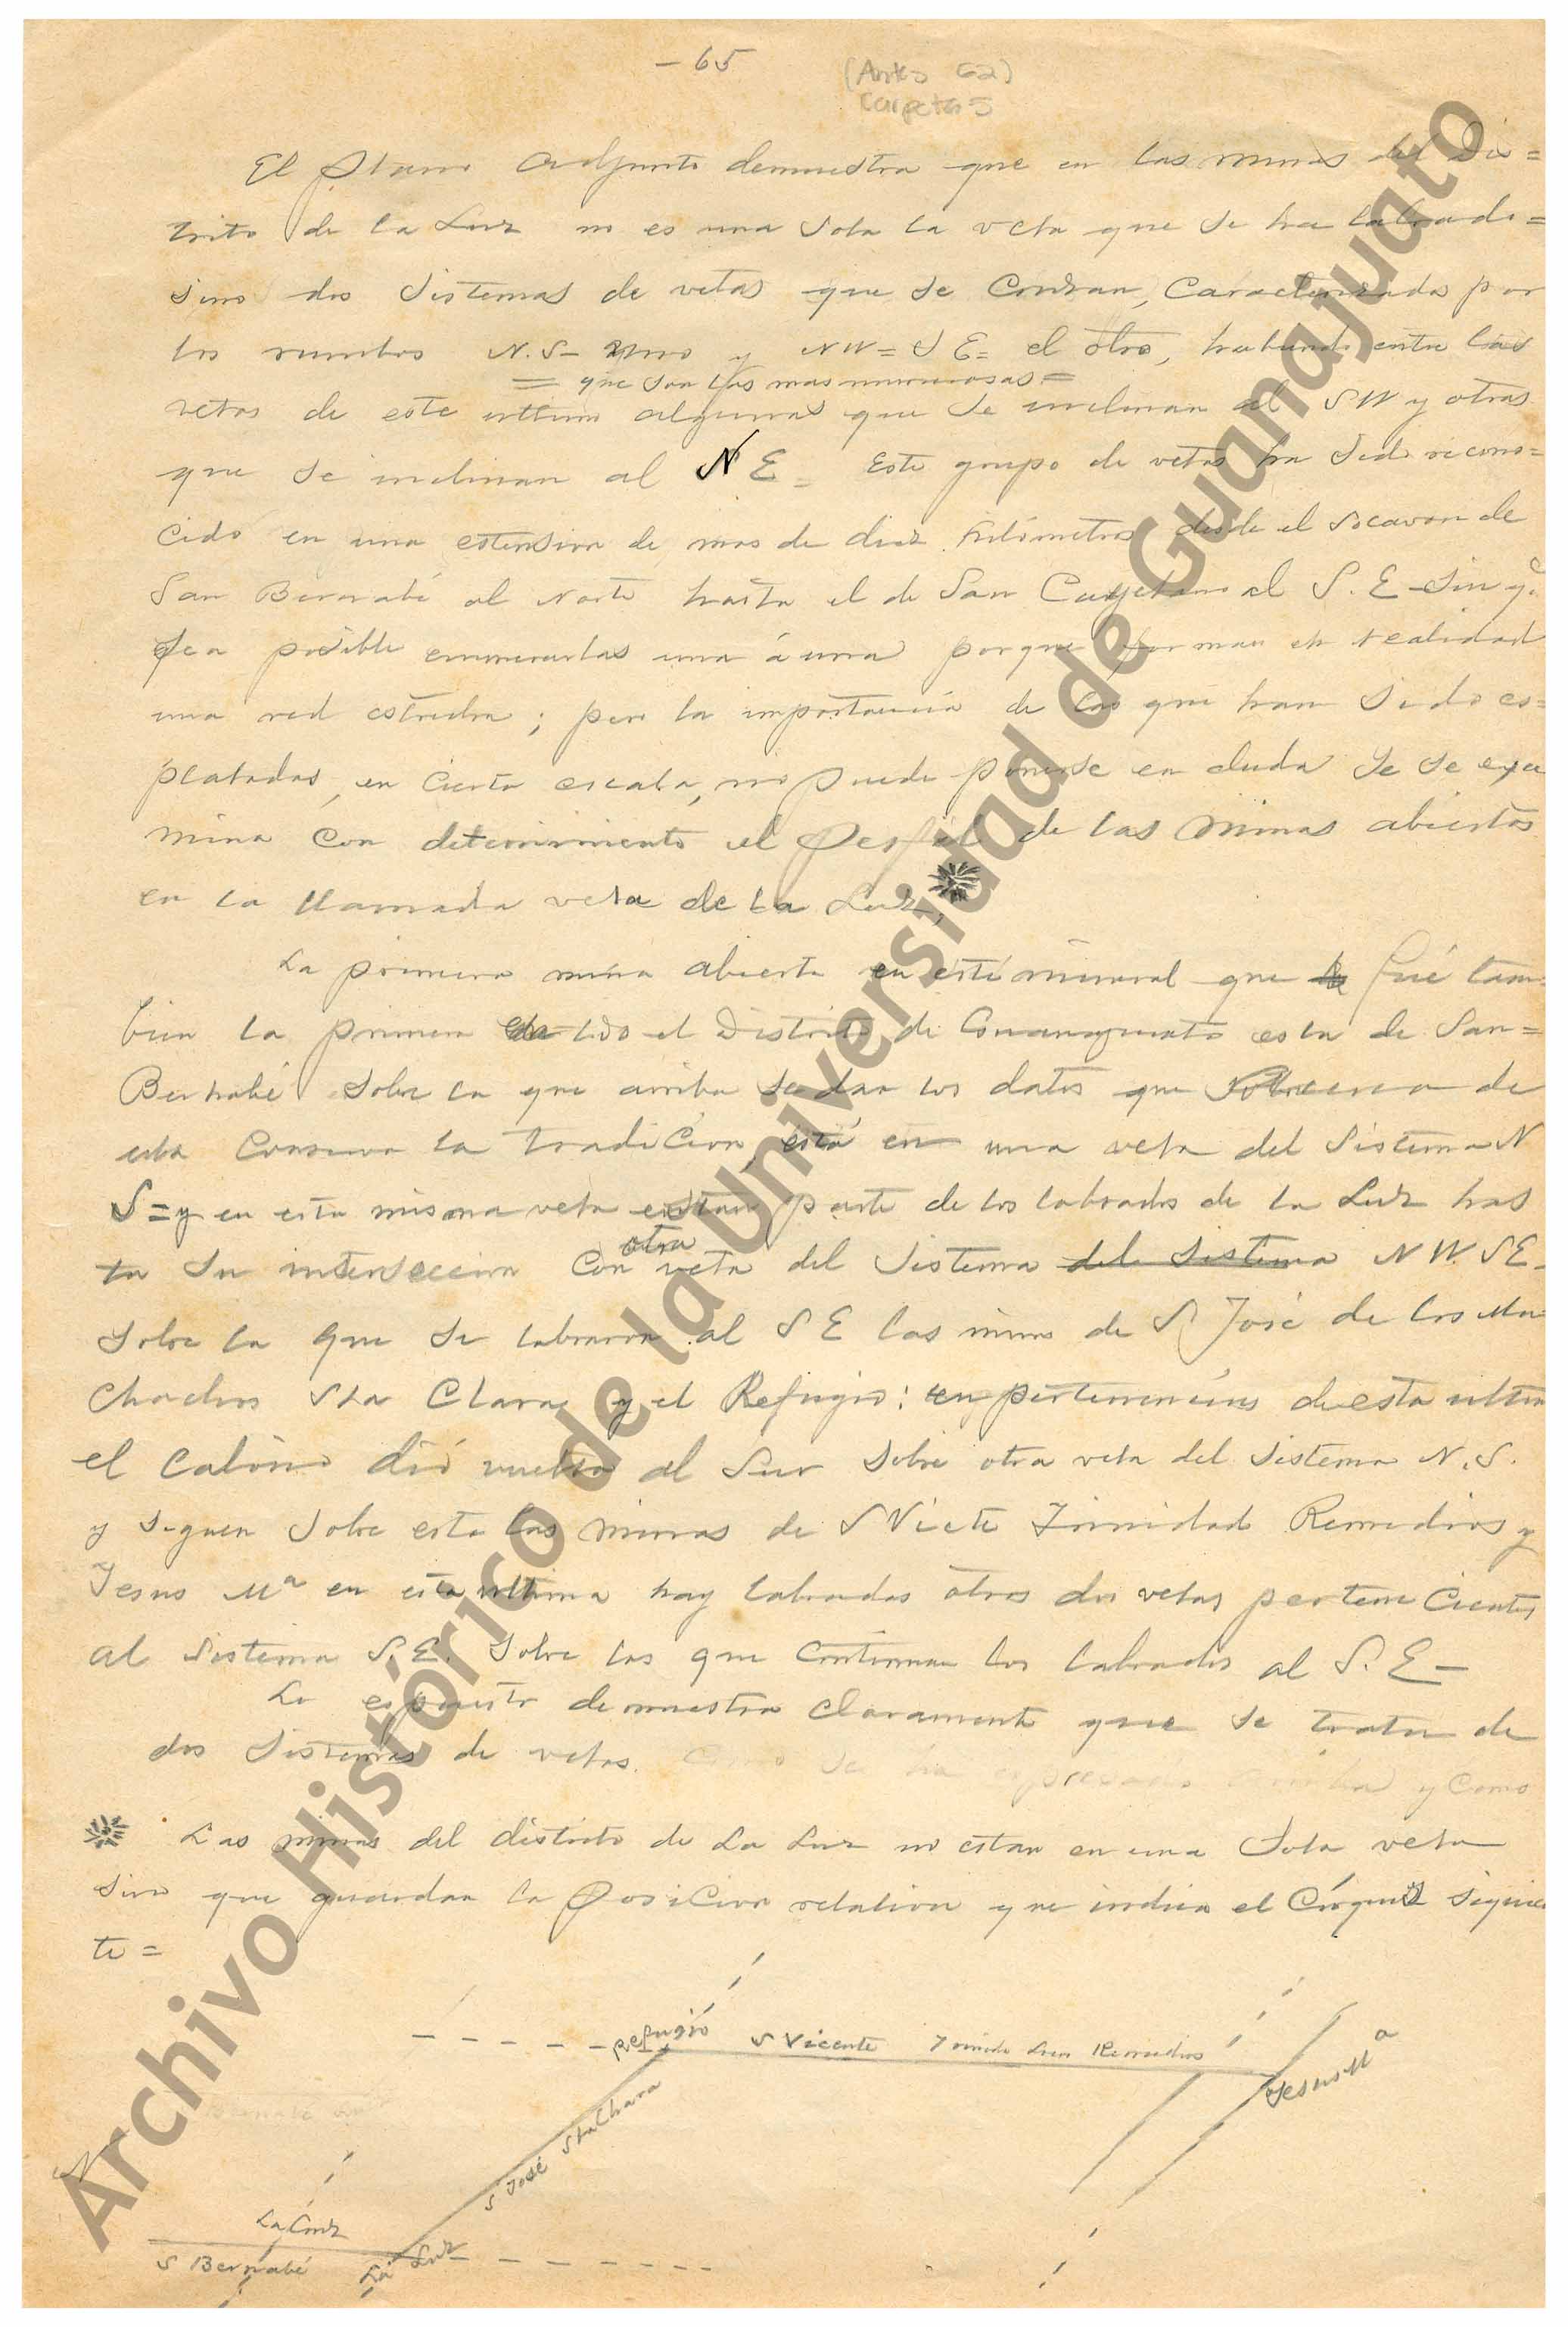 - 65
(Antes 62)
Carpeta 5
El Plano adjunto demuestra que en las minas del Dis=
trito de la Luz no es una sola la veta que se ha labrado=
sino dos sistemas de vetas que se cruzan, caracterizados por
los rumbos N.S- uno y NW=SE= el otro, habiendo entre las
= que son las mas numerosas =
vetas de este ultimo algunas que se inclinan al SW y otras
que se inclinan al NE= Este grupo de vetas ha sido recono=
cido en una estension de mas de diez kilómetros desde el socavon de
San Bernabé al Norte hasta el de San Cayetano al S.E- sin qe
sea posible enumerarlas una á una porque forman en realidad
una red estrecha; pero la importancia de las que han sido es=
plotadas, en cierta escala, no puede ponerse en duda se se exa
mina con detenimiento el Perfil de las Minas abiertas
en la llamada veta de la Luz,
La primera mina abierta en este mineral que fué tam
bien la primera todo el Distrito de Guanajuato es la de San=
Bernabé sobre la que arriba se dan los datos que de
ella conserva la tradicion, está en una veta del sistema N
S= y en esta misma veta estan parte de los labrados de la Luz has
ta su interseccion con otra veta del sistema del sistema NW. SE-
sobre la que se labraron al SE las minas de S José de los Mu
chachos Sta Clara y el Refugio: en pertenencias de esta ultim
el cañon dió vuelta al Sur sobre otra veta del sistema N.S.
y siguen sobre esta las minas de S Victe Trinidad Remedios y
Jesus Ma en esta ultima hay labradas otras dos vetas pertenecientes
al sistema S.E. sobre las que continuan los labrados al S.E-
Lo espuesto demuestra claramente que se trata de
dos sistemas de vetas. como se ha espresado arriba y como
Las minas del distrito de La Luz no estan en una sola veta
sino que guardan la posicion relativa que indica el Cróquis siguien
te=
Refugio S Vicente Remedios
Jesus Ma
S José Sta Clara
N
La Cruz
S Bernabé La Luz
Archivo Histórico de la Universidad de Guanajuato